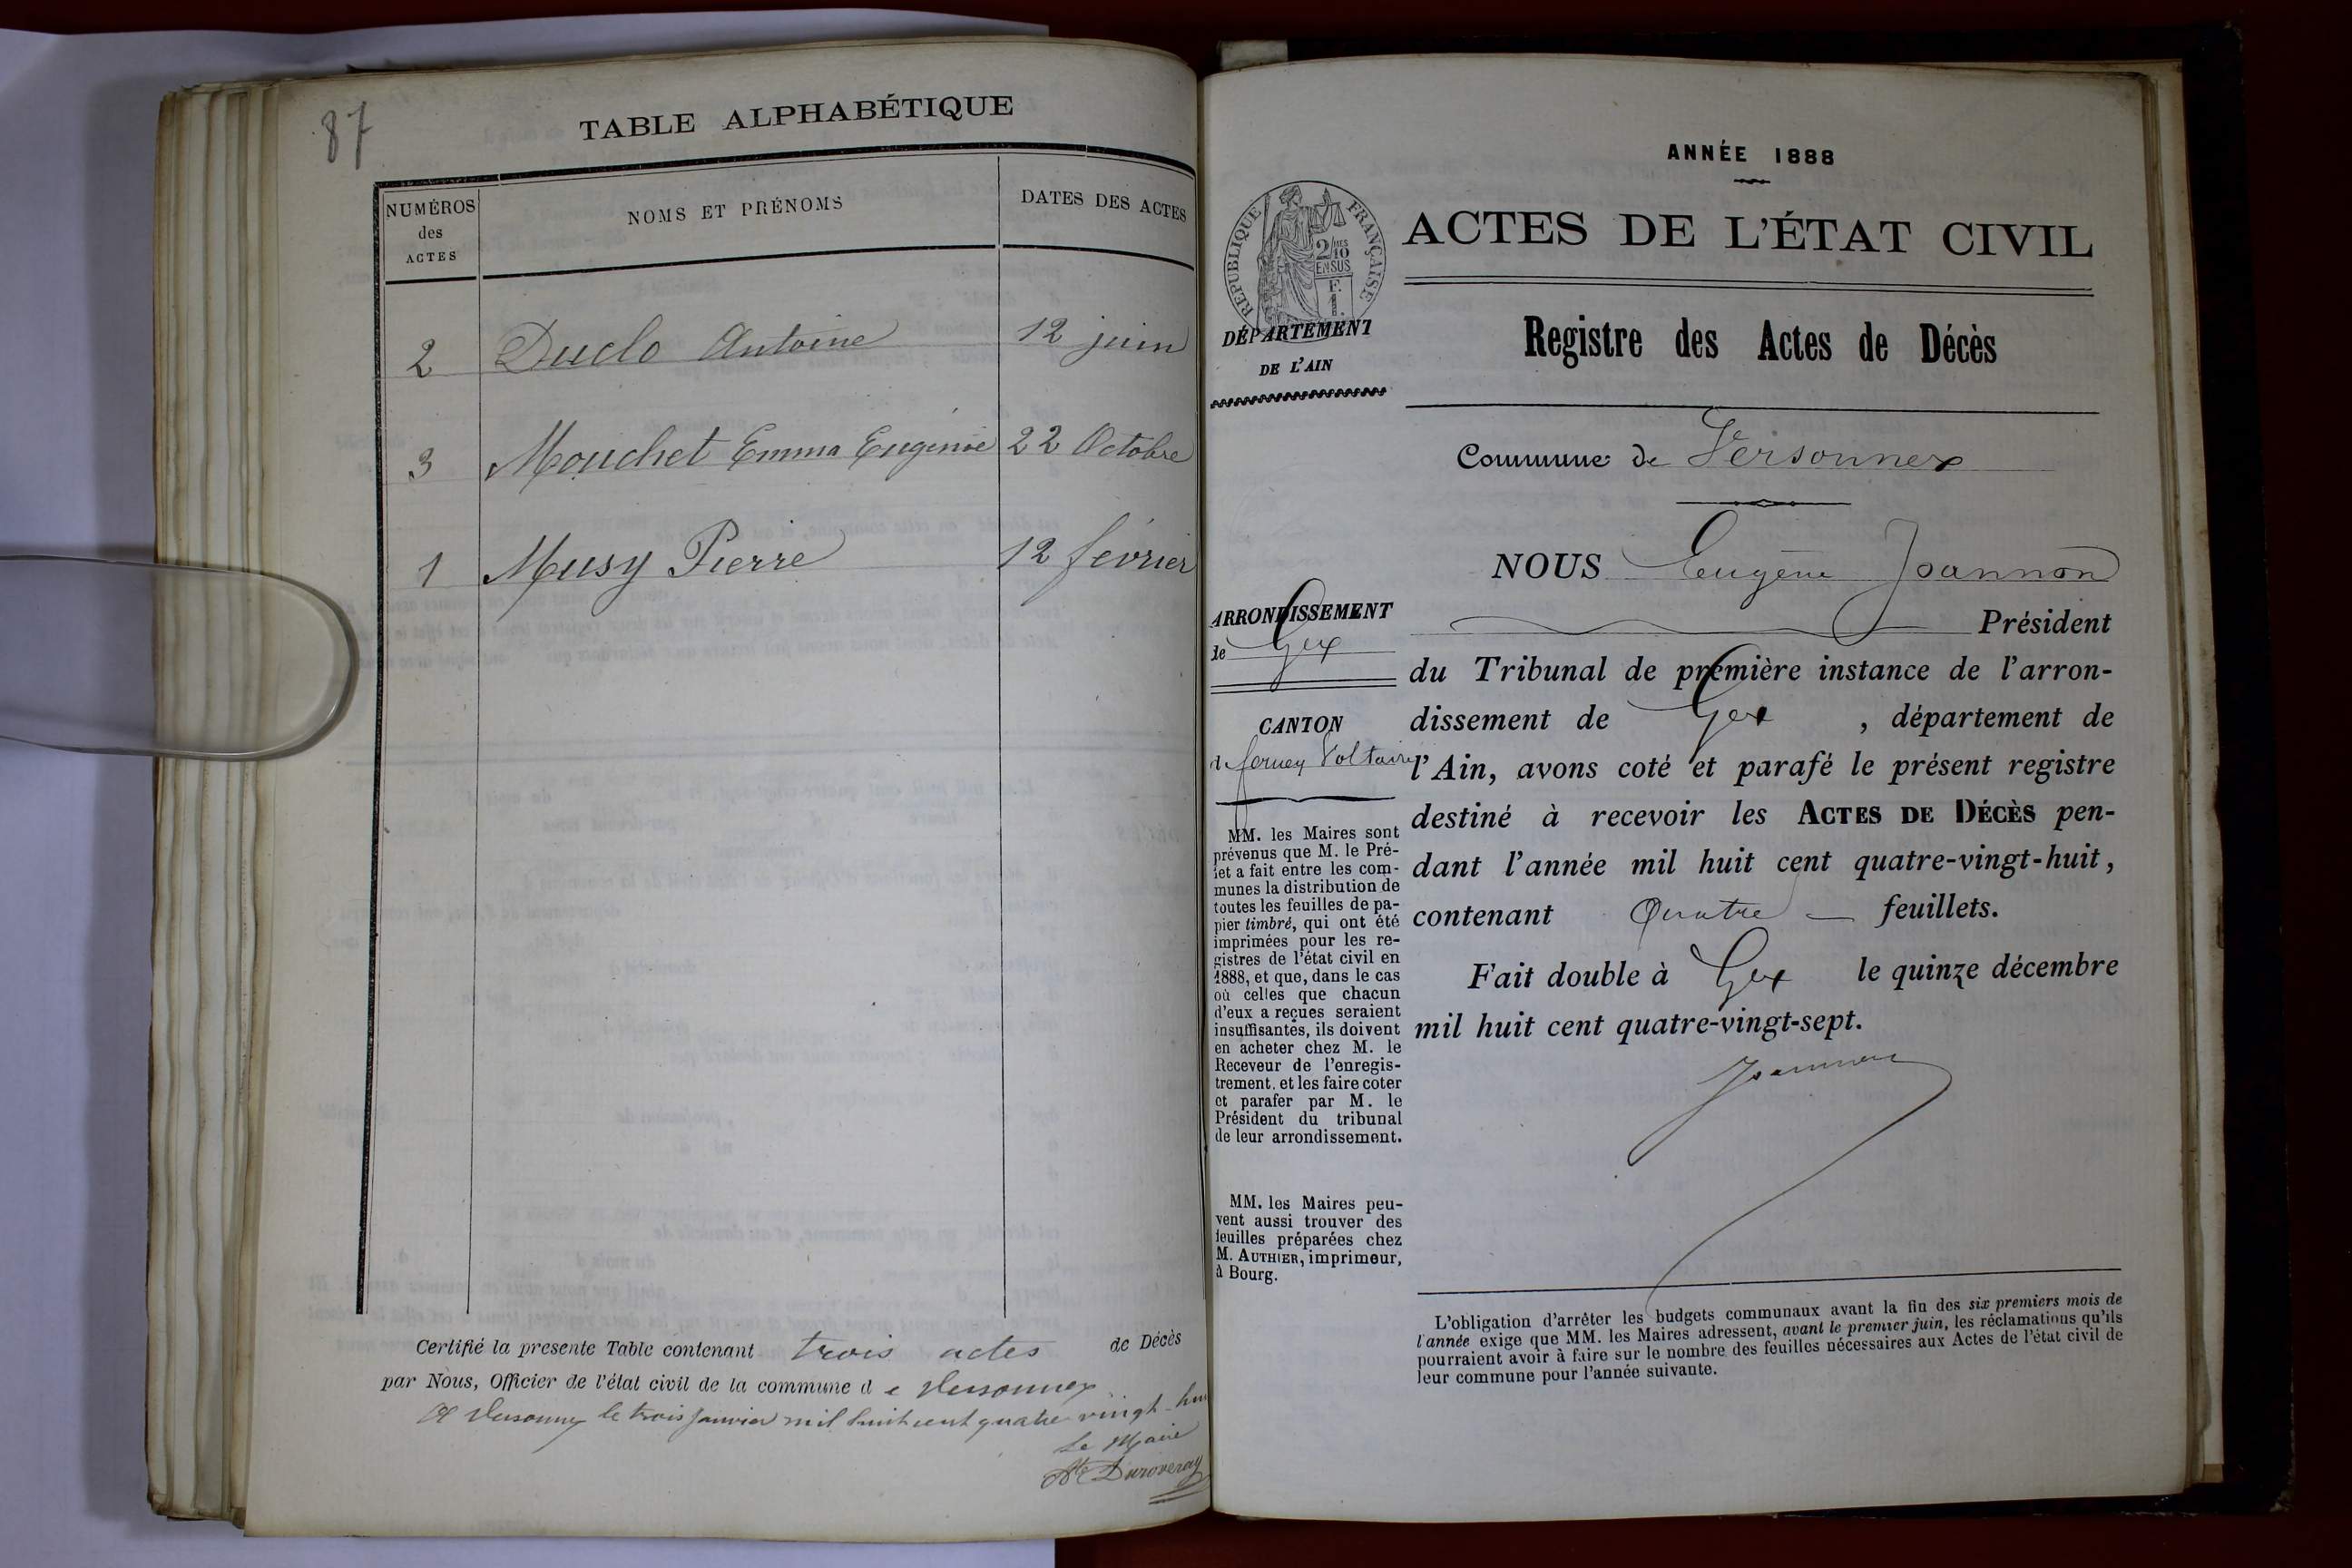 87
TABLE ALPHABÉTIQUE
NUMÉROS
des
ACTES
NOMS ET PRÉNOMS
DATES DES ACTES
2 Duclo Antoine 12 juin
3 Mouchet Emma Eugénie 22 Octobre
1 Musy Pierre 12 février
Certifié la presente Table contenant trois actes de Décès
par Nous, Officier de l'état civil de la commune d e Versonnex
A Versonnex le trois Janvier mil huit cent quatre-vingt-hui
Le Maire
Duroveray
ANNÉE 1888
RÉPUBLIQUE FRANÇAISE
2/10
EN SUS
F.
1.
DÉPARTEMENT
DE L'AIN
ACTES DE L'ÉTAT CIVIL
Registre des Actes de Décès
Commune de Versonnex
ARRONDISSEMENT
de Gex
CANTON
d ferney Voltaire
MM. les Maires sont
prévenus que M. le Pré-
fet a fait entre les com-
munes la distribution de
toutes les feuilles de pa-
pier timbré, qui ont été
imprimées pour les re-
gistres de l'état civil en
1888, et que, dans le cas
où celles que chacun
d'eux a reçues seraient
insuffisantes, ils doivent
en acheter chez M. le
Receveur de l'enregis-
trement, et les faire coter
et parafer par M. le
Président du tribunal
de leur arrondissement.
MM. les Maires peu-
vent aussi trouver des
feuilles préparées chez
M. AUTHIER, imprimeur,
à Bourg.
NOUS Eugène Joannon
Président
du Tribunal de première instance de l'arron-
dissement de Gex , département de
l'Ain, avons coté et parafé le présent registre
destiné à recevoir les ACTES DE DÉCÈS pen-
dant l'année mil huit cent quatre-vingt-huit,
contenant Quatre feuillets.
Fait double à Gex le quinze décembre
mil huit cent quatre-vingt-sept.
Joannon
L'obligation d'arrêter les budgets communaux avant la fin des six premiers mois de
l'année exige que MM. les Maires adressent, avant le premier juin, les réclamations qu'ils
pourraient avoir à faire sur le nombre des feuilles nécessaires aux Actes de l'état civil de
leur commune pour l'année suivante.